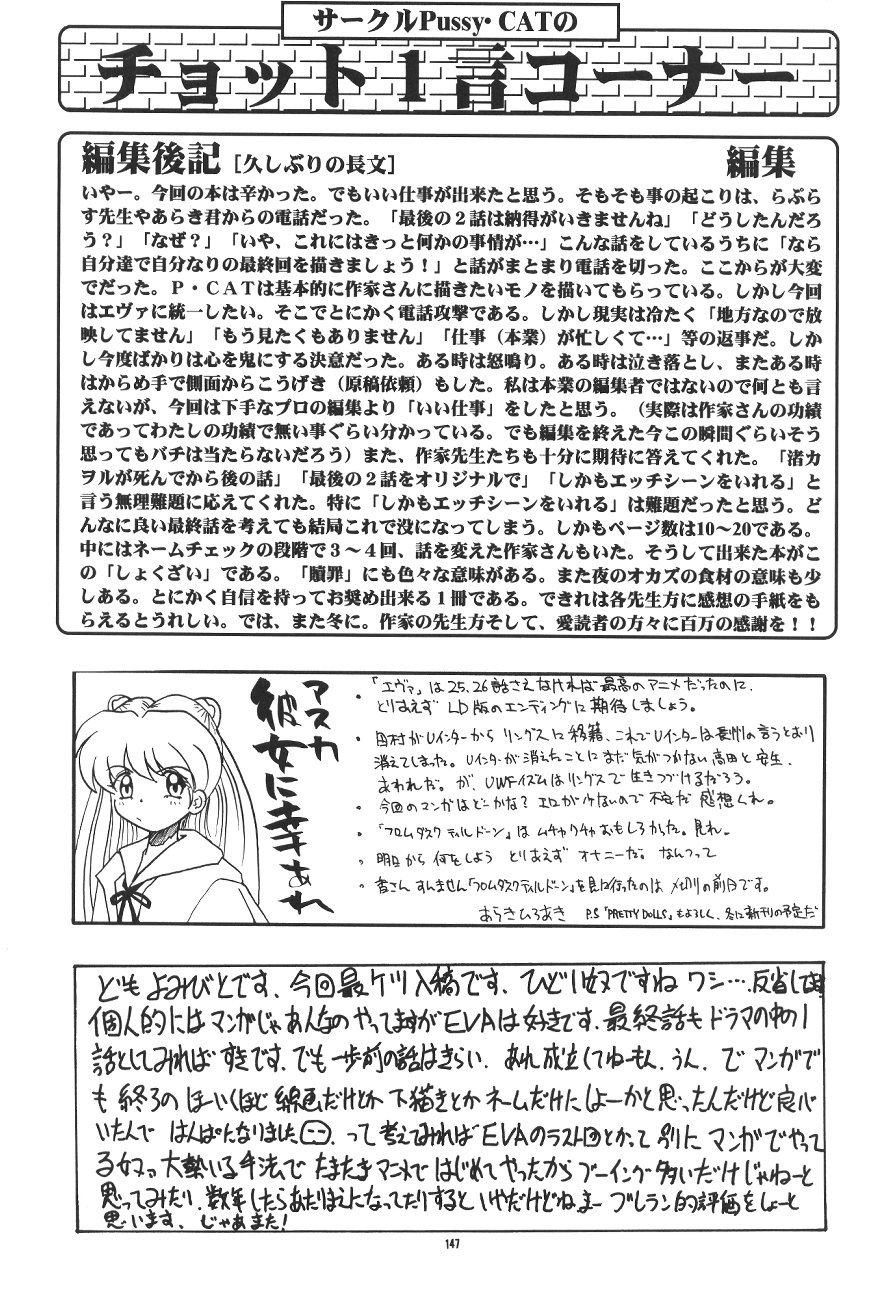 サークルPussy・CATの
チョット1言コーナー
編集後記 [久しぶりの長文] 編集
いやー。今回の本は辛かった。でもいい仕事が出来たと思う。そもそも事の起こりは、らぷら
す先生やあらき君からの電話だった。「最後の2話は納得がいきませんね」「どうしたんだろ
う?」「なぜ?」「いや、これにはきっと何かの事情が…」こんな話をしているうちに「なら
自分達で自分なりの最終回を描きましょう!」と話がまとまり電話を切った。ここからが大変
でだった。P・CATは基本的に作家さんに描きたいモノを描いてもらっている。しかし今回
はエヴァに統一したい。そこでとにかく電話攻撃である。しかし現実は冷たく「地方なので放
映してません」「もう見たくもありません」「仕事(本業)が忙しくて…」等の返事だ。しか
し今度ばかりは心を鬼にする決意だった。ある時は怒鳴り。ある時は泣き落とし、またある時
はからめ手で側面からこうげき(原稿依頼)もした。私は本業の編集者ではないので何とも言
えないが、今回は下手なプロの編集より「いい仕事」をしたと思う。(実際は作家さんの功績
であってわたしの功績で無い事ぐらい分かっている。でも編集を終えた今この瞬間ぐらいそう
思ってもバチは当たらないだろう)また、作家先生たちも十分に期待に答えてくれた。「渚カ
ヲルが死んでから後の話」「最後の2話をオリジナルで」「しかもエッチシーンをいれる」と
言う無理難題に応えてくれた。特に「しかもエッチシーンをいれる」は難題だったと思う。ど
んなに良い最終話を考えても結局これで没になってしまう。しかもページ数は10〜20である。
中にはネームチェックの段階で3〜4回、話を変えた作家さんもいた。そうして出来た本がこ
の「しょくざい」である。「贖罪」にも色々な意味がある。また夜のオカズの食材の意味も少
しある。とにかく自信を持ってお奨め出来る1冊である。できれは各先生方に感想の手紙をも
らえるとうれしい。では、また冬に。作家の先生方そして、愛読者の方々に百万の感謝を!!
アスカ
彼女に幸あれ
・「エヴァ」は25、26話さえなければ最高のアニメだったのに、
とりあえず LD版のエンディングに期待しましょう。
・田村がUインターから リングスに移籍、これでUインターは長州の言うとおり
消えてしまった。Uインターが消えたことにまだ気がつかない高田と安生、
あわれだ。が、UWFイズムはリングスで生きつづけるだろう。
・今回のマンガはどーかな? エロが少ないので不安だ 感想くれ。
・「フロムダスクティルドーン」は ムチャクチャおもしろかった。見れ。
・明日から 何をしよう とりあえず オナニーだ。 なんつって
・皆さん すんません「フロムダスクティルドーン」を見に行ったのは 〆切りの前日です。
あらきひろあき P.S「PRETTY DOLLS」もよろしく、冬に新刊の予定だ
ども よみびとです、今回最ケツ入稿です、ひどい奴ですね ワシ…。反省してます
個人的にはマンガじゃあんなのやってますがEVAは好きです。最終話もドラマの中の1
話としてみればすきです。でも一歩前の話はきらい。あれ成立してねーもん。うん。で マンガで
も 終ろの ほーいくほど 線画だけとか 下描きとか ネームだけに しよーかと思ったんだけど良心
いたんで はんぱになりました。って 考えてみれば EVAのラスト回とかって 別に マンガでやって
る奴ァ 大勢いる手法で たまたまアニメで はじめてやったから ブーイング多いだけじゃねーと
思ってみたり。数年したらあたりまえになってたりすると いやだけどねま― ブレラン的評価をしよーと
思います、じゃあまた!
147